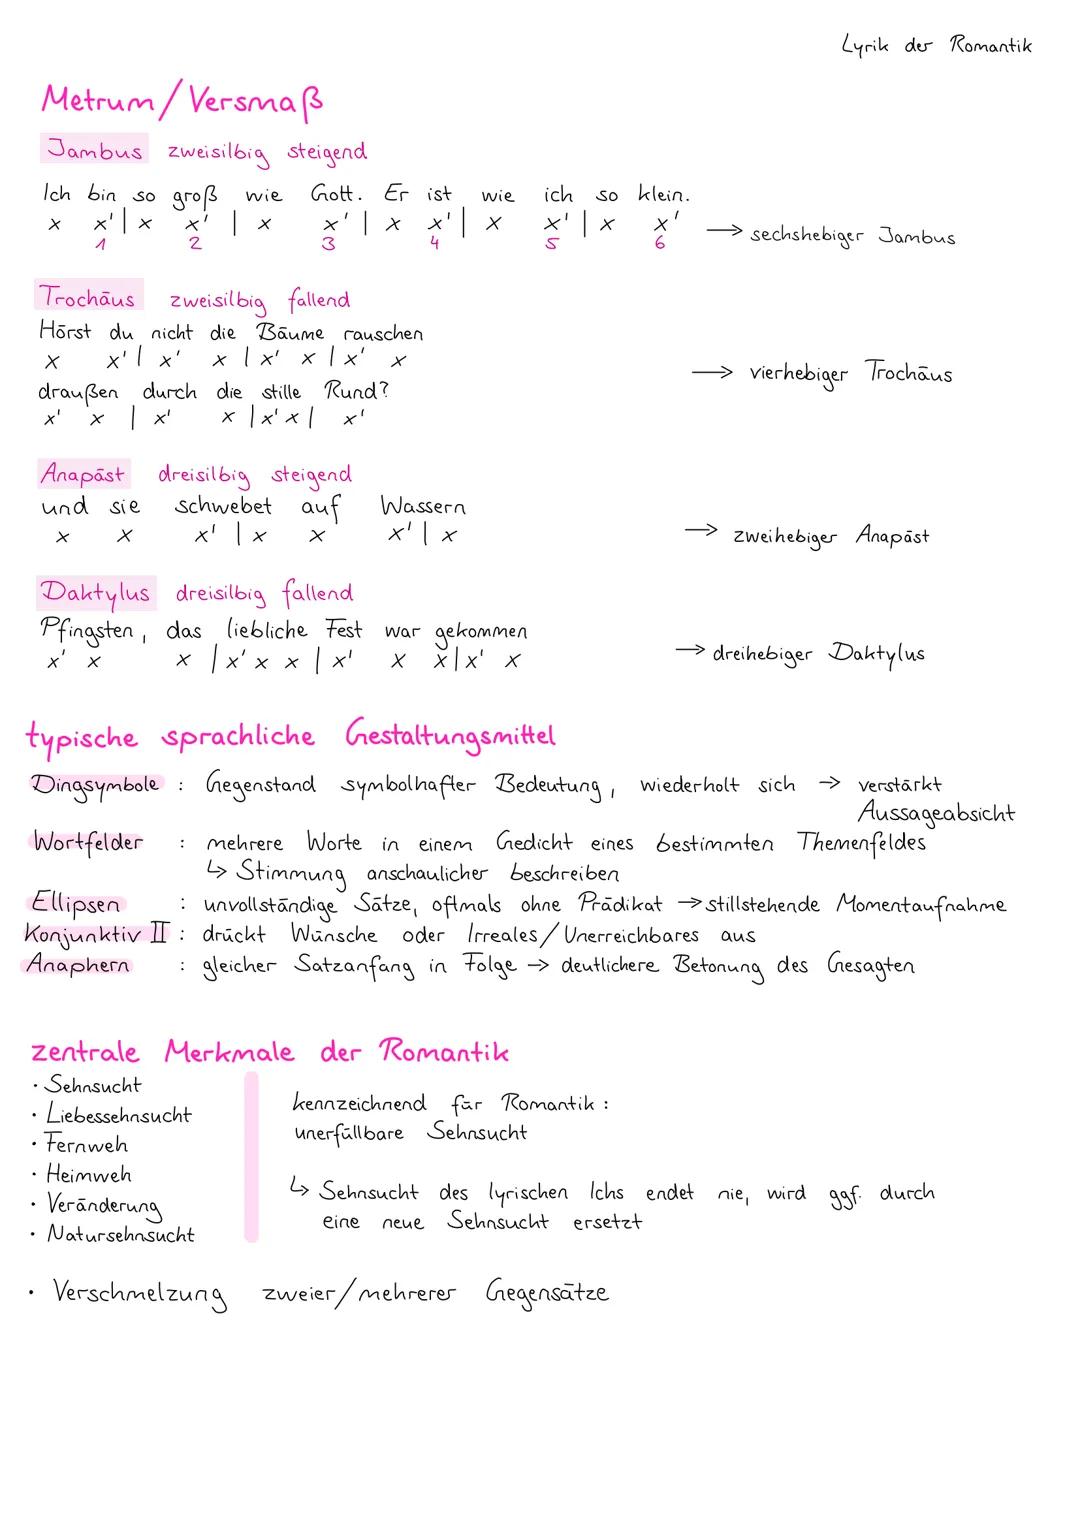 Lyrik der Romantik
Metrum/Versmaß
Jambus zweisilbig steigend
Ich bin so groß wie Gott. Er ist wie ich so klein.
x x' | x x' | x x' | x x' | x x' | x x' → sechshebiger Jambus
1 2 3 4 5 6
Trochäus zweisilbig fallend
Hörst du nicht die Bäume rauschen
x x' | x' x | x' x | x' x → vierhebiger Trochäus
draußen durch die stille Rund?
x' x | x' x | x' x | x'
Anapäst dreisilbig steigend
und sie schwebet auf Wassern
x x x' | x x x' | x → zweihebiger Anapäst
Daktylus dreisilbig fallend
Pfingsten, das liebliche Fest war gekommen
x' x x | x' x x | x' x x | x' x → dreihebiger Daktylus
typische sprachliche Gestaltungsmittel
Dingsymbole : Gegenstand symbolhafter Bedeutung, wiederholt sich → verstärkt
Aussageabsicht
Wortfelder : mehrere Worte in einem Gedicht eines bestimmten Themenfeldes
↳ Stimmung anschaulicher beschreiben
Ellipsen : unvollständige Sätze, oftmals ohne Prädikat → stillstehende Momentaufnahme
Konjunktiv II : drückt Wünsche oder Irreales/Unerreichbares aus
Anaphern : gleicher Satzanfang in Folge → deutlichere Betonung des Gesagten
zentrale Merkmale der Romantik
· Sehnsucht
· Liebessehnsucht
· Fernweh
· Heimweh
· Veränderung
· Natursehnsucht
kennzeichnend für Romantik :
unerfüllbare Sehnsucht
↳ Sehnsucht des lyrischen Ichs endet nie, wird ggf. durch
eine neue Sehnsucht ersetzt
· Verschmelzung zweier/mehrerer Gegensätze